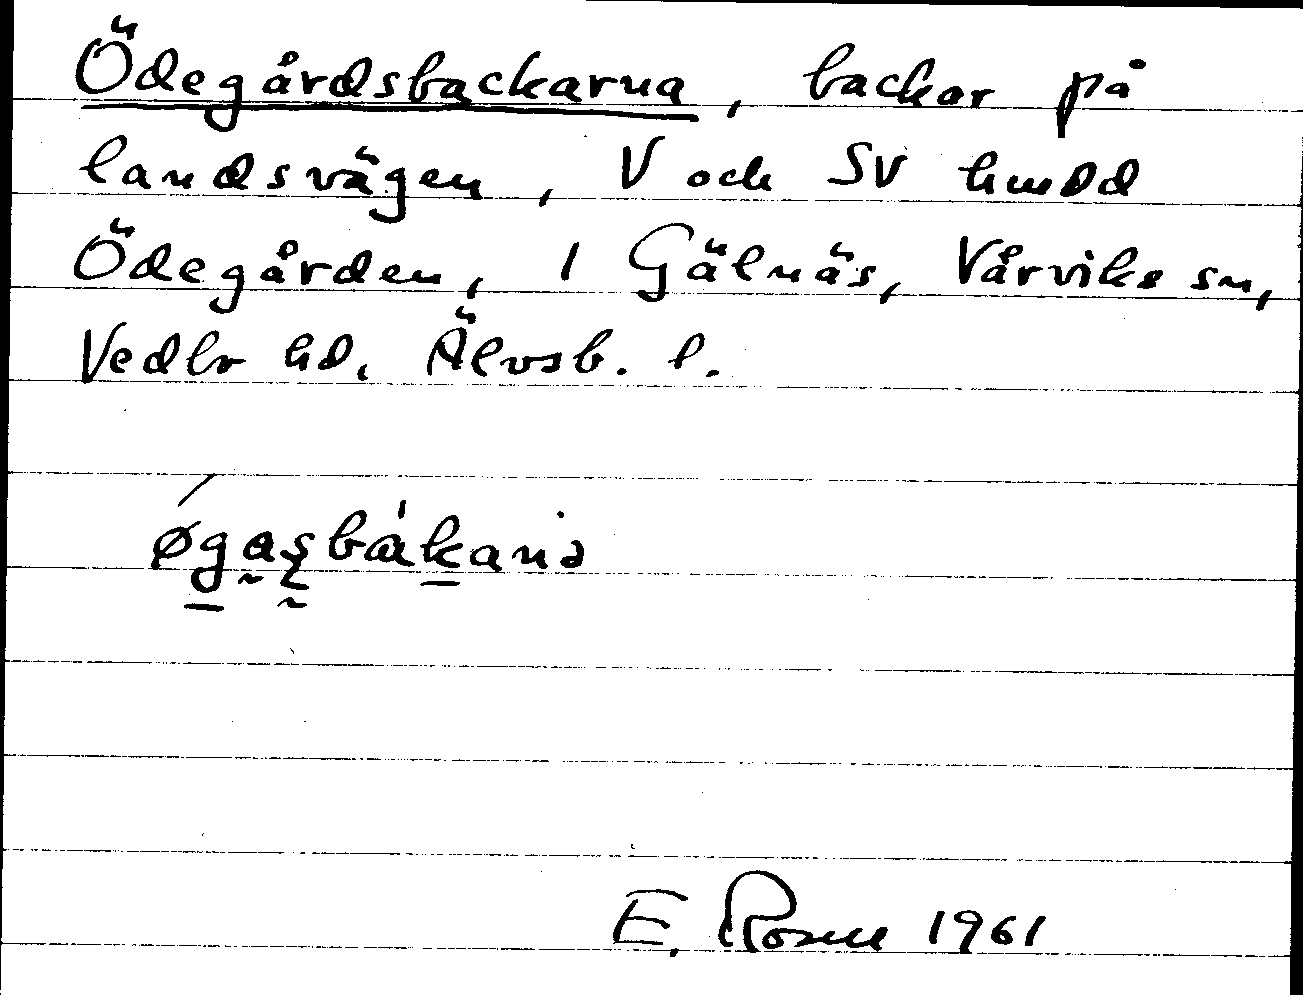 Ödegårdsbackarna, backar på
landsvägen, V och SV
Ödegården, 1 Gälnäs, Vårviks sn,
Vedbo hd, Älvsb. l.
E. 1961